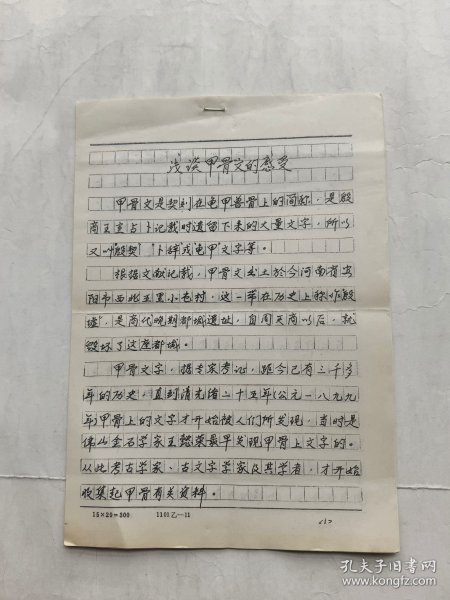 浅谈甲骨文的感受
甲骨文是契刻在龟甲兽骨上的简称，是殷
商王室占卜记载时遗留下来的大量文字，所以
又叫殷契、卜辞或龟甲文字等。
根据文献记载，甲骨文出土於今河南省安
阳市西北五里小屯村，这一带在历史上称作殷
墟，是商代晚期都城遗址，自周灭商以后，就
毁坏了这座都城。
甲骨文字，据专家考证，距今已有三千多
年的历史，直到清光绪二十五年(公元一八九九
年)甲骨上的文字才开始被人们所发现，当时是
山金石学家王懿荣最早发现甲骨上文字的。
从此考古学家、古文字学家及其学者，才开始
收集起甲骨有关资料。
15×20=300 1101乙—11
<1>
孔夫子旧书网
www.kongfz.com